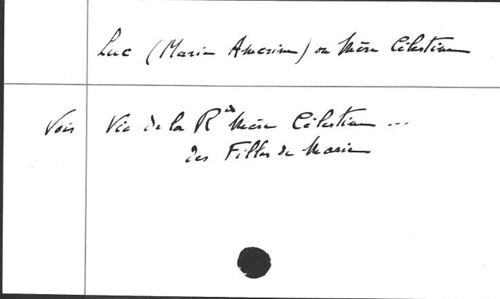 Luc (Marie Amerine) ou Mère Célestine
Voir Vie de la Rde Mère Célestine ...
des Filles de Marie